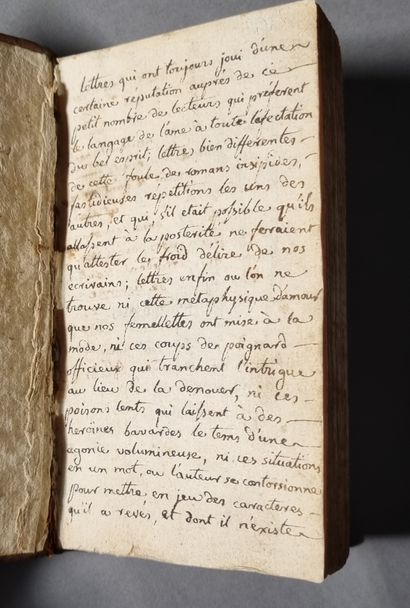 lettres qui ont toujours joui d'une
certaine réputation auprès de ce
petit nombre de lecteurs qui préferent
le langage de l'ame à toute l'afectation
du bel esprit; lettres bien differentes
de cette foule de romans insipides,
fastidieuses repetitions les uns des
autres, et qui, s'il etait possible qu'ils
allassent à la posterité ne feraient
qu'attester le froid délire de nos
ecrivains; lettres enfin ou l'on ne
trouve ni cette métaphysique d'amour
que nos femellettes ont mise à la
mode, ni ces coups de poignard
officieux qui tranchent l'intrigue
au lieu de la denouer, ni ces
poisons lents qui laissent à des
heroïnes bavardes le tems d'une
agonie volumineuse, ni ces situations
en un mot, ou l'auteur se contorsionne
pour mettre en jeu des caracteres
qu'il a revés, et dont il n'existe